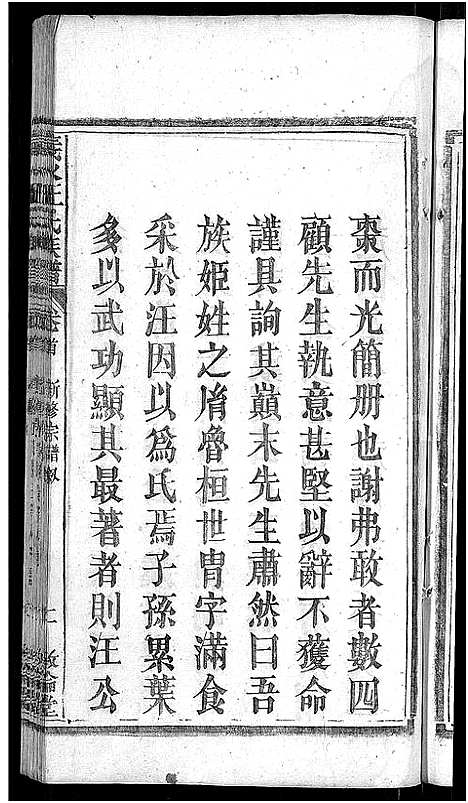 棗而光簡册也謝弗敢者數四
顧先生執意甚堅以辭不獲命
謹具詢其巔末先生肅然曰吾
族姬姓之㣧魯桓世胄字滿食
采於汪因以爲氏焉子孫累葉
多以武功顯其最著者則汪公
汪氏族譜
卷首
新修宗譜敘